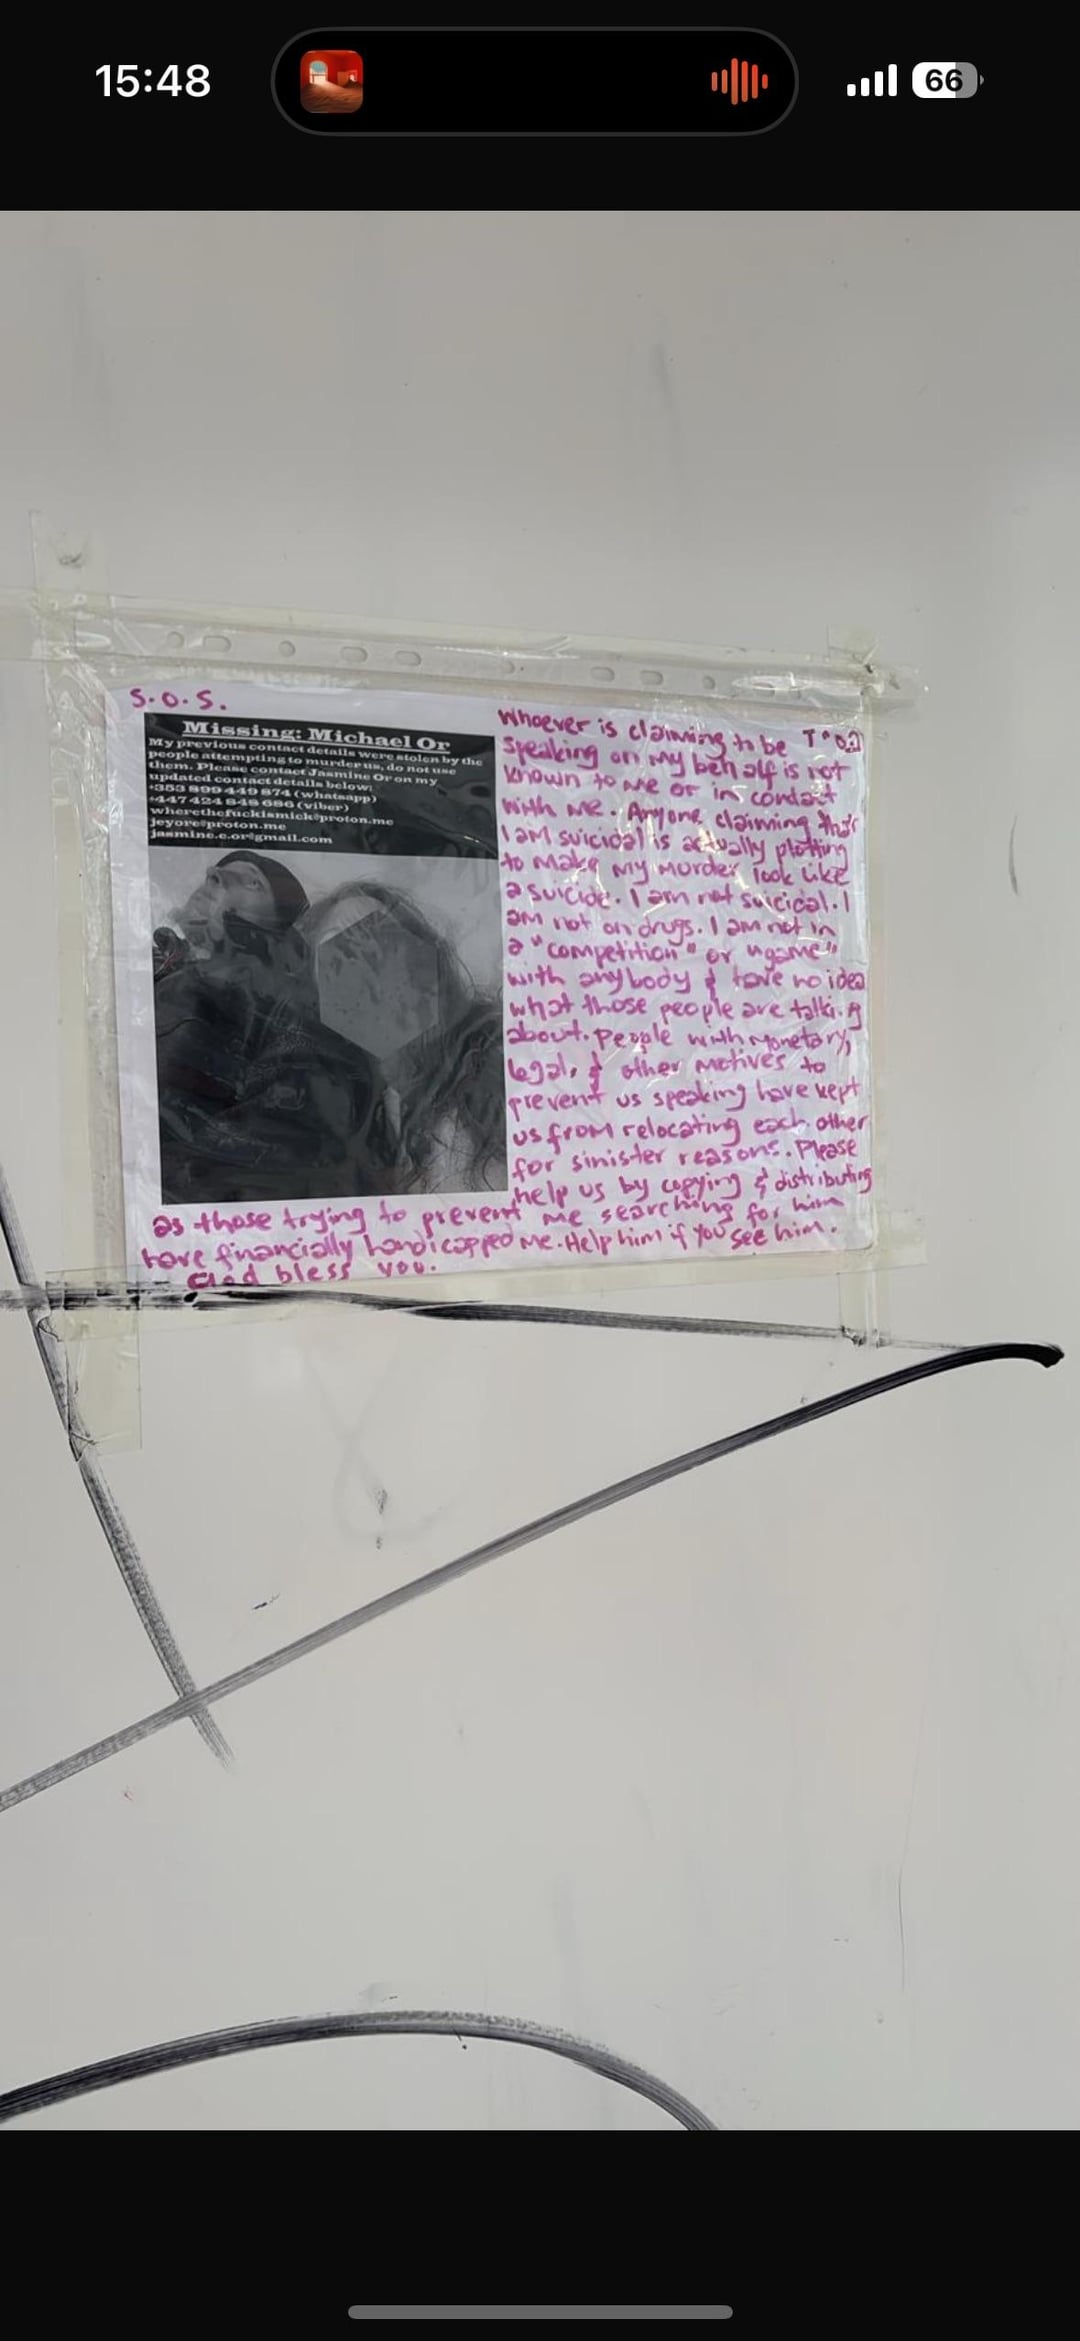 15:48
66
S.O.S.
Missing: Michael Or
My previous contact details were stolen by the
people attempting to murder us, do not use
them. Please contact Jasmine Or on my
updated contact details below:
+353 899 449 874 (whatsapp)
(viber)
wherethefuckismick@proton.me
jeyore@proton.me
jasmine.e.or@gmail.com
Whoever is claiming to be
speaking on my behalf is not
known to me or in contact
with me. Anyone claiming that
I am suicidal is actually plotting
to make my murder look like
a suicide. I am not suicidal. I
am not on drugs. I am not in
a "competition" or "game"
with anybody & have no idea
what those people are talking
about. People with monetary,
legal, & other motives to
prevent us speaking have kept
us from relocating each other
for sinister reasons. Please
help us by copying & distributing
as those trying to prevent me searching for him
have financially handicapped me. Help him if you see him.
God bless you.